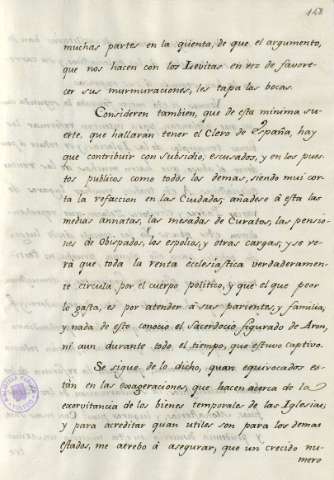 148
muchas partes en la qüenta, de que el argumento,
que nos hacen con los Levitas en vez de favore-
cer sus murmuraciones, les tapa las bocas.
Consideren tambien, que de esta minima su-
erte, que hallaran tener el Clero de España, hay
que contribuir con subsidio, escusados, y en los pues
tos publicos como todos los demas, siendo mui cor-
ta la refaccion en las Ciudades; añadese á esta las
medias annatas, las mesadas de Curatos, las pensio
nes de Obispados, los espolios, y otras cargas, y se ve-
rá que toda la renta ecclesiastica verdaderamen-
te circula por el cuerpo politico, y que el que peor
lo gasta, es por atender á sus parientes, y familia,
y nada de esto conocio el Sacerdocio figurado de Aron,
ni aun durante todo el tiempo, que estuvo captivo.
Se sigue de lo dicho, quan equivocados es-
tán en las exageraciones, que hacen acerca de la
exorvitancia de los bienes temporales de las Iglesias;
y para acreditar quan utiles son para los demas
estados, me atrebo á asegurar, que un crecido nu-
mero